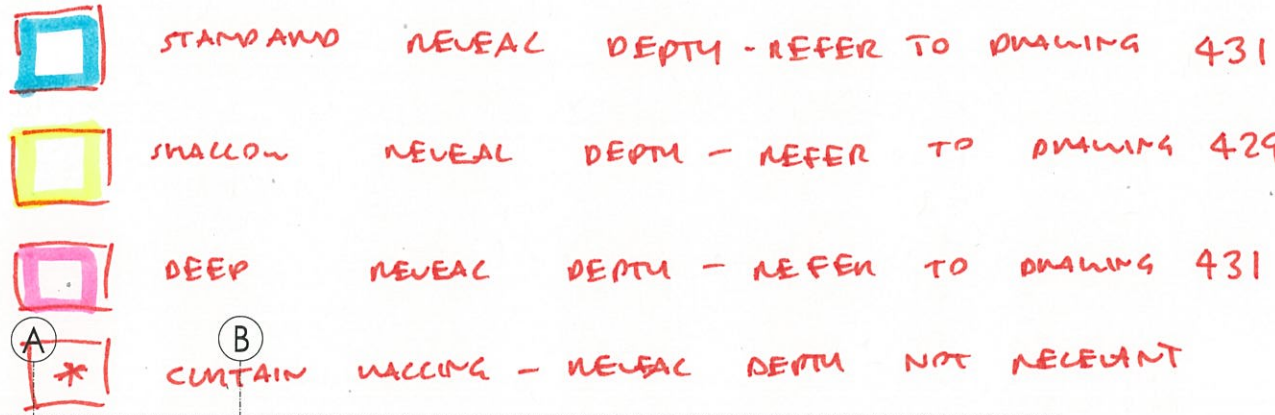 STANDARD REVEAL DEPTH - REFER TO DRAWING 431
SHALLOW REVEAL DEPTH - REFER TO DRAWING 429
DEEP REVEAL DEPTH - REFER TO DRAWING 431
A B
* CURTAIN WALLING - REVEAL DEPTH NOT RELEVANT